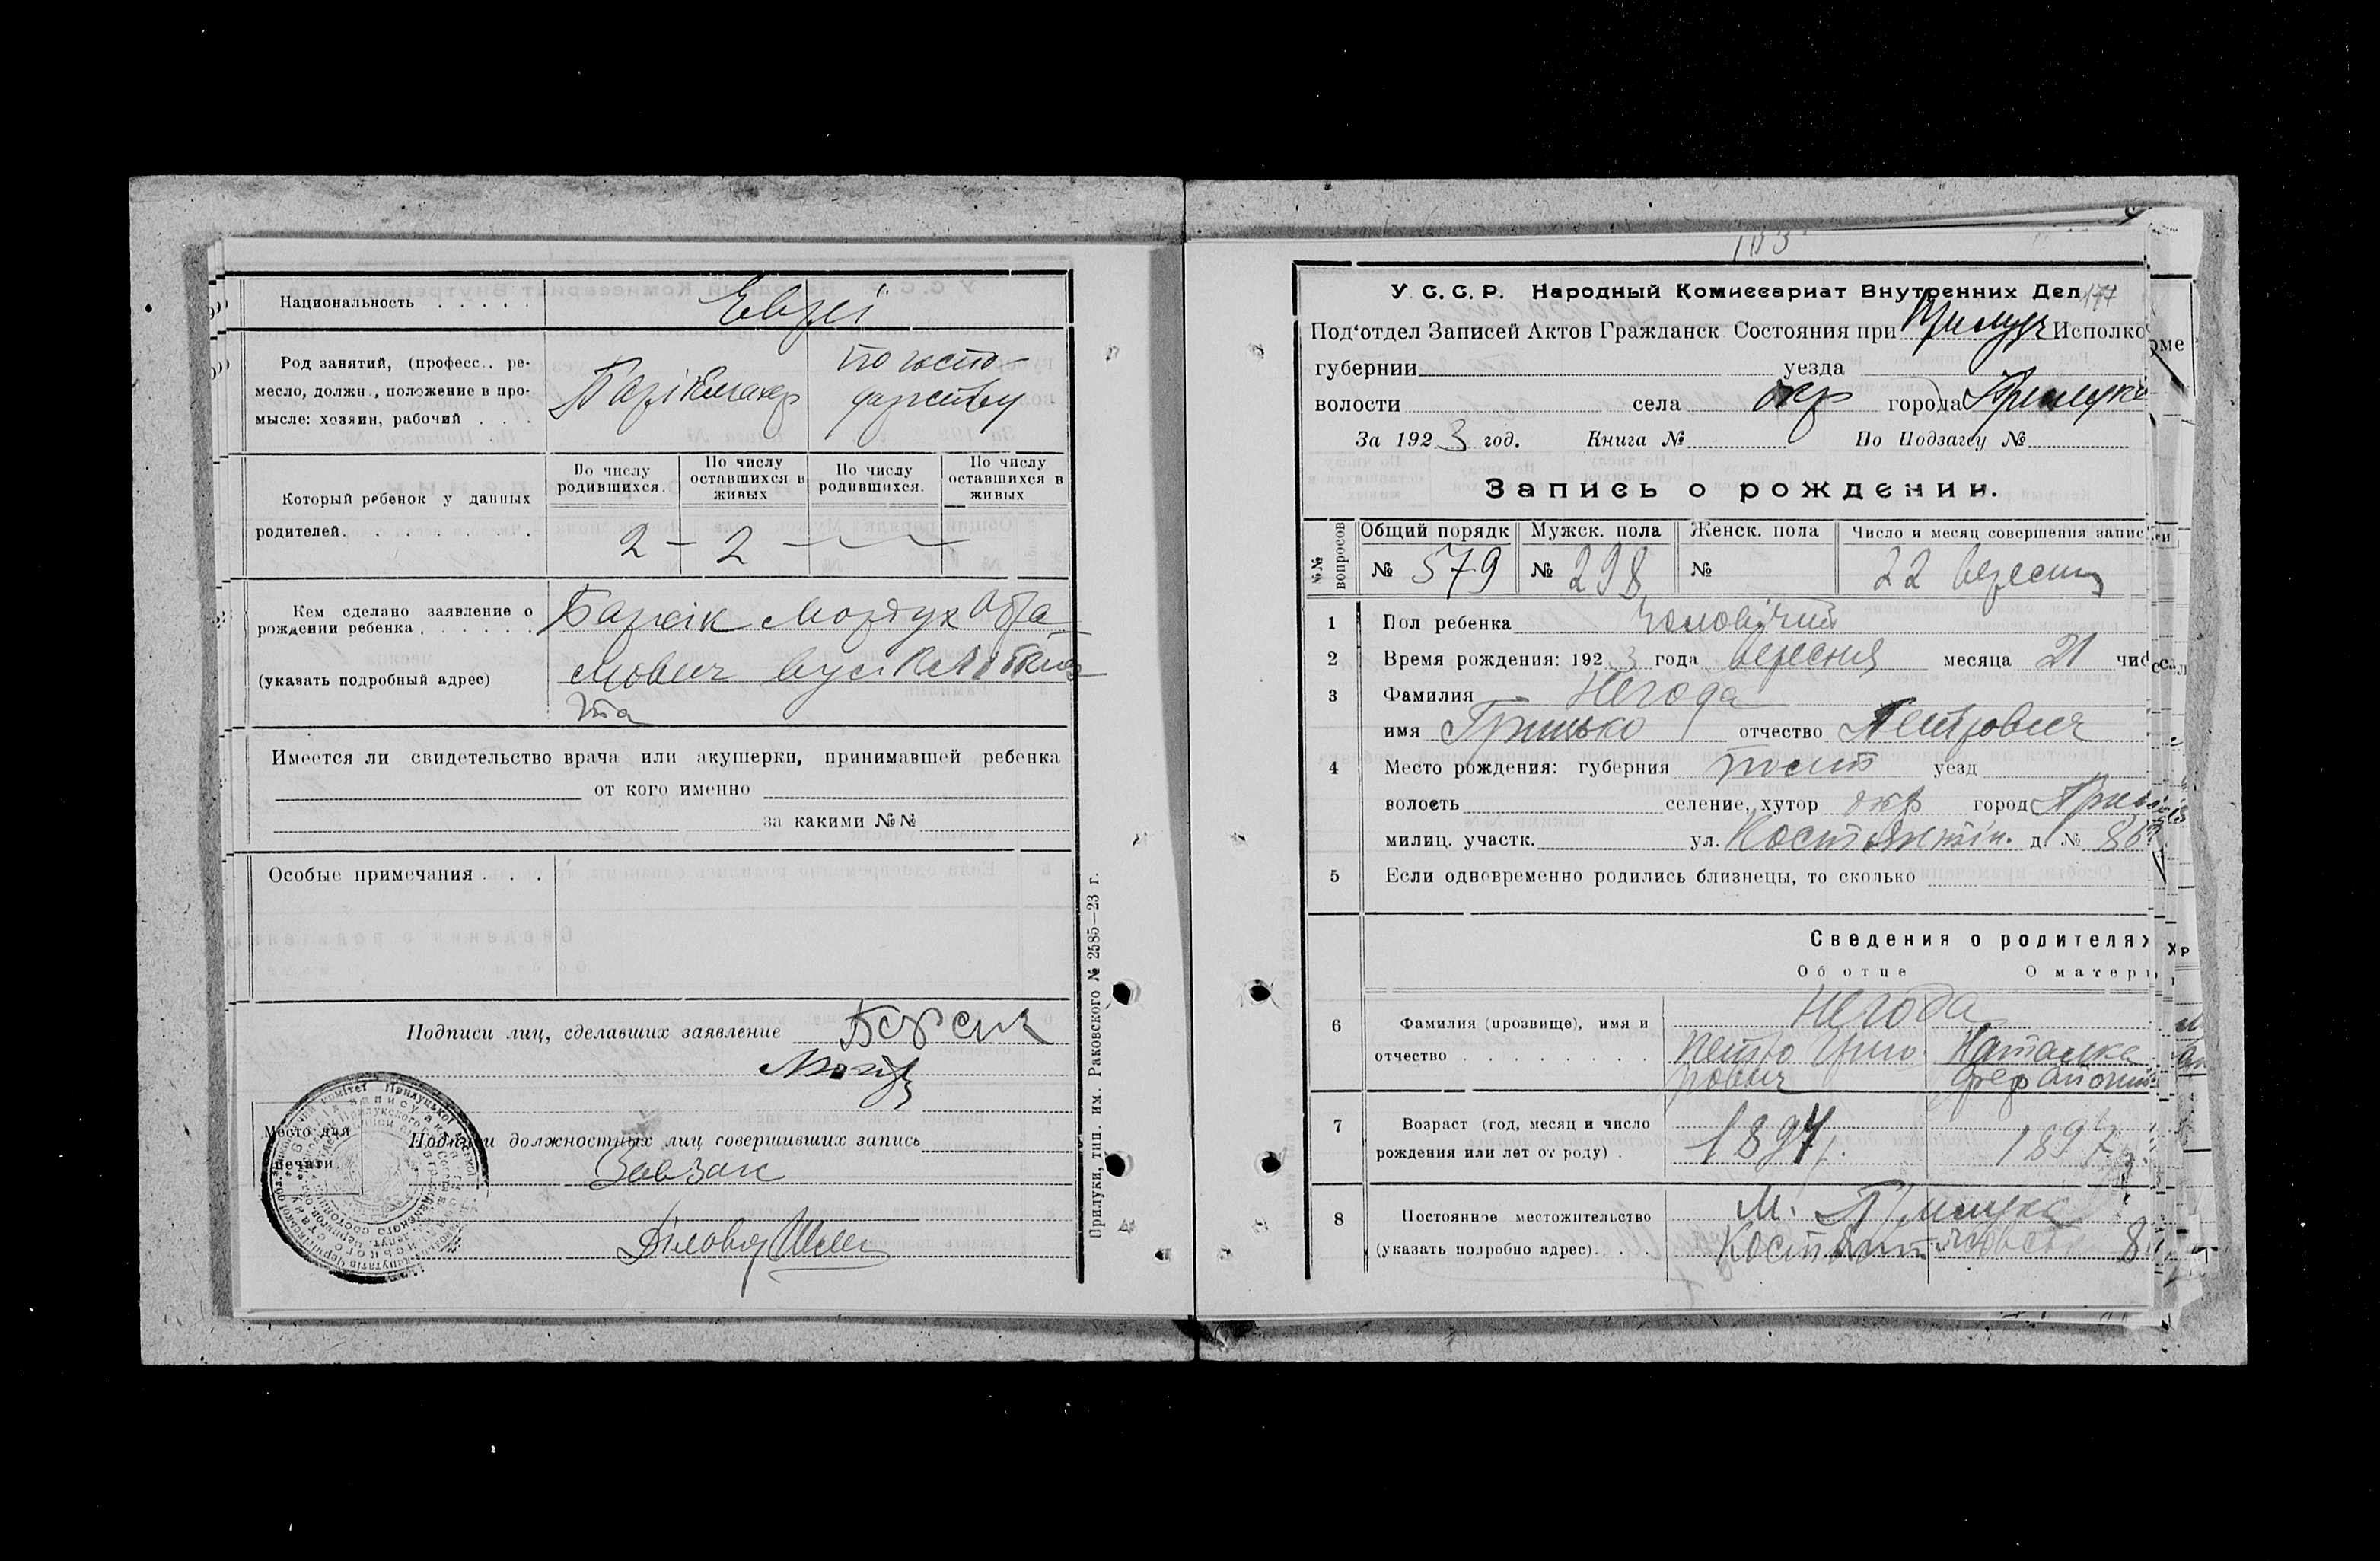 Национальность . . . . .
Евреї
Род занятий, (професс., ре-
месло, должн., положение в про-
мысле: хозяин, рабочий . . .
Парікмахер
по госпо-
дарству
Который ребенок у данных
родителей. . . . . . . .
По числу родившихся.
По числу оставшихся в живых
По числу родившихся.
По числу оставшихся в живых
2 — 2 —
Кем сделано заявление о
рождении ребенка . . . . . .
(указать подробный адрес)
Барсік Мордух Абра
мович вул.
Имеется ли свидетельство врача или акушерки, принимавшей ребенка
от кого именно
за какими №№
Особые примечания . . .
Подписи лиц, сделавших заявление
Место для
печати.
Подписи должностных лиц совершивших запись
Завзаг
Діловод
Прилуки, тип. им. Раковского № 2585—23 г.
193
У. С. С. Р. Народный Комиссариат Внутренних Дел
177
Под‘отдел Записей Актов Гражданск Состояния при Прилуц Исполко
губернии уезда
волости села окр города Прилуки
За 1923 год. Книга № По Подзагсу №
Запись о рождении.
№№ вопросов
Общий порядк Мужск. пола Женск. пола Число и месяц совершения запис
№ 579 № 298 № 22 вересня
1 Пол ребенка чоловічий
2 Время рождения: 1923 года вересня месяца 21 чис
3 Фамилия Негода
имя Грицько отчество Петрович
4 Место рождения: губерния Полт уезд
волость селение, хутор окр город Прилуки
милиц. участк. ул. Костянтин. д. № 86
5 Если одновременно родились близнецы, то сколько
Сведения о родителях
Об отце О матери
6 Фамилия (прозвище), имя и
отчество . . . . . . . . .
Негода
Петро Григо-
рович
Наталка
7 Возраст (год, месяц и число
рождения или лет от роду) .
1897р. 1897р.
8 Постоянное местожительство
(указать подробно адрес). . .
М. Прилука
Костянтиновська 8